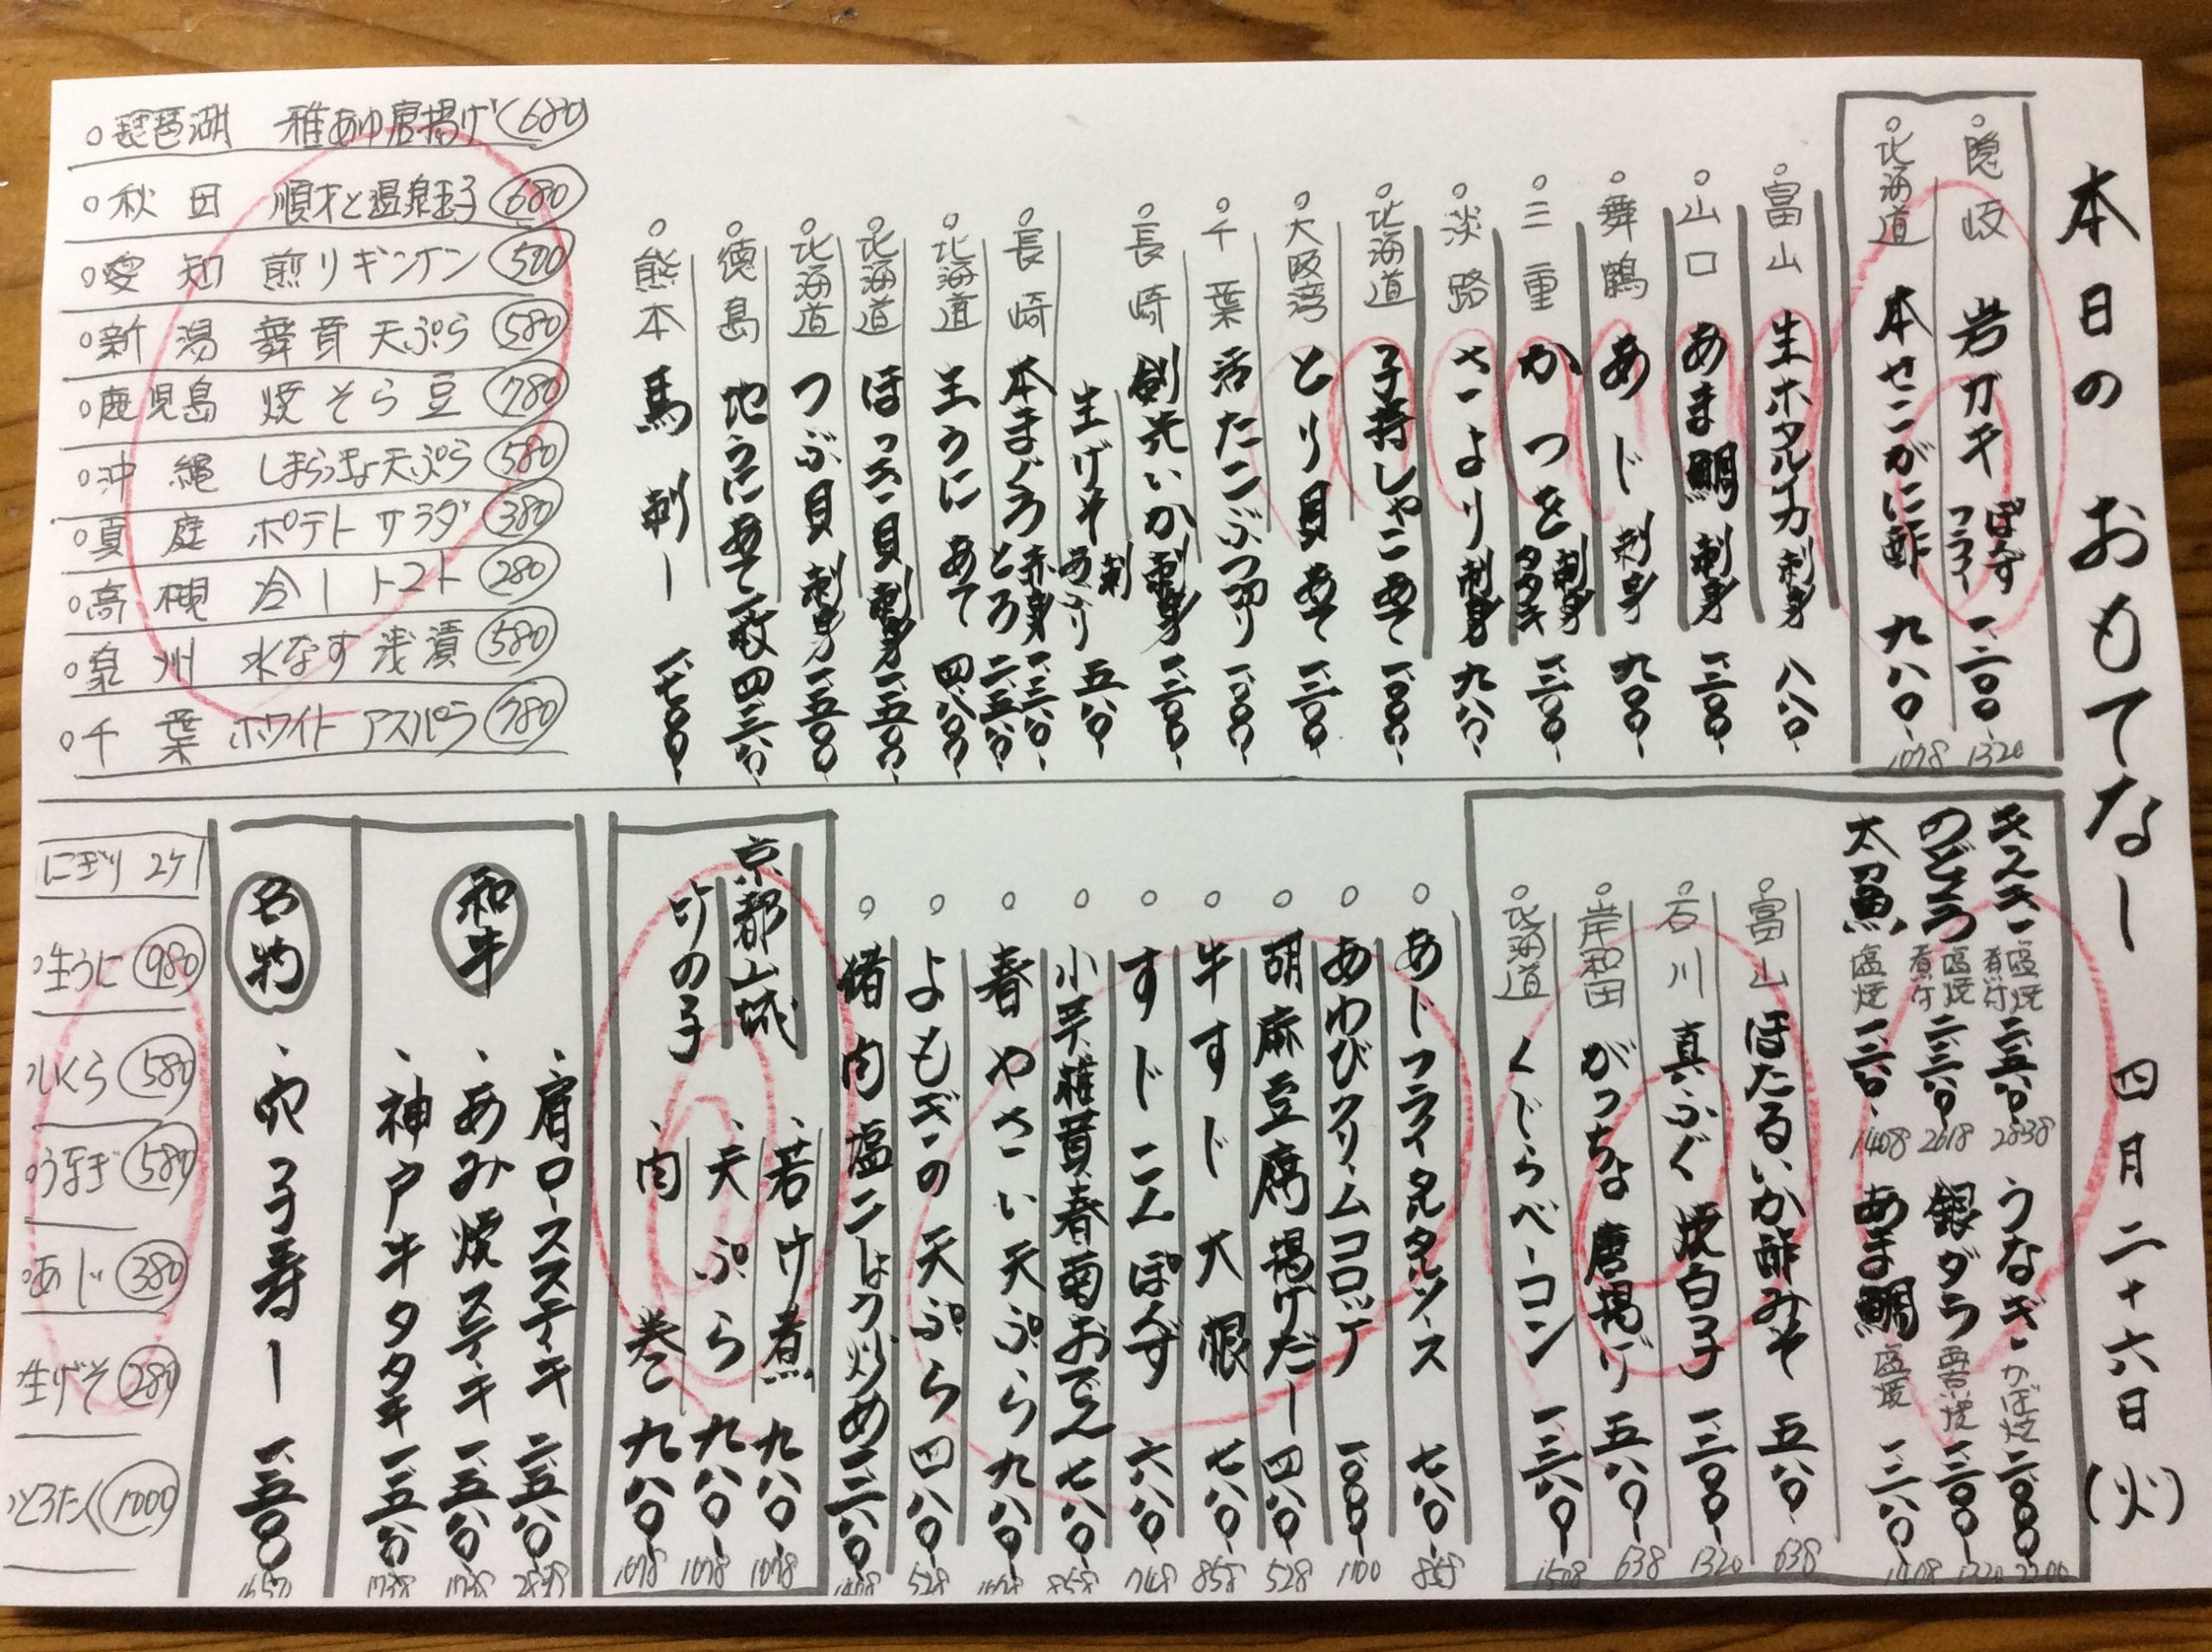 本日の おもてなし 四月二十六日(火)
隠岐 岩ガキ ぽんず フライ 一、二〇〇 1320
北海道 本せこがに酢 九八〇 1078
富山 生ホタルイカ 刺身 八八〇
山口 あま鯛 刺身 一、二〇〇
舞鶴 あじ 刺身 九〇〇
三重 かつを 刺身 タタキ 一、二〇〇
淡路 さより 刺身 九八〇
北海道 子持しゃこ あて 一、〇〇〇
大阪湾 とり貝 あて 一、二〇〇
千葉 活たこぶつ切り 一、〇〇〇
長崎 剣先いか 刺身 一、二〇〇
生げそ 刺 あぶり 五八〇
長崎 本まぐろ 赤身 とろ
北海道 生うに あて 四、八〇〇
北海道 ほっき貝 刺身 一、五〇〇
北海道 つぶ貝 刺身 一、五〇〇
徳島 地うに あて 一枚
熊本 馬刺し
琵琶湖 稚あゆ唐揚げ 680
秋田 順才と温泉玉子 680
愛知 煎りギンナン 500
新潟 舞茸天ぷら 580
鹿児島 焼そら豆 780
沖縄 しまらっきょ天ぷら 580
真庭 ポテトサラダ 380
高槻 冷しトマト 280
泉州 水なす浅漬 580
千葉 ホワイトアスパラ 780
きんき 塩焼 煮付 2838
のどぐろ 塩焼 煮付 2618
太刀魚 塩焼 1408
うなぎ かば焼 二、〇〇〇 2200
銀ダラ 西京焼 一、二〇〇 1320
あま鯛 塩焼 一、二八〇 1408
富山 ほたるいか酢みそ 五八〇 638
石川 真ふぐ 焼白子 一、二〇〇 1320
岸和田 がっちょ 唐揚げ 五八〇 638
北海道 くじらベーコン
あじフライタルタルソース 七八〇 858
あわびクリームコロッケ 一、〇〇〇 1100
胡麻豆腐揚げだし 四八〇 528
牛すじ大根 七八〇 858
すじこんぽんず 六八〇 748
小芋椎茸春菊おでん 七八〇 858
春やさい天ぷら 九八〇 1078
よもぎの天ぷら 四八〇 528
猪肉塩こしょう炒め 一、二八〇 1408
京都山城 竹の子
若竹煮 九八〇 1078
天ぷら 九八〇 1078
肉巻 九八〇 1078
和牛
肩ロースステーキ
あみ焼ステーキ
神戸牛タタキ
名物
穴子寿し 一、五〇〇
にぎり 2ケ
生うに 980
いくら 580
うなぎ 580
あじ 380
生げそ 280
とろたく 1000